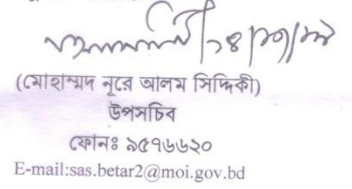 (মোহাম্মদ নূরে আলম সিদ্দিকী)
উপসচিব
ফোনঃ ৯৫৭৬৬২০
E-mail:sas.betar2@moi.gov.bd